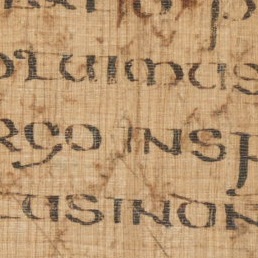 oluimus
rgo insp
eusinon